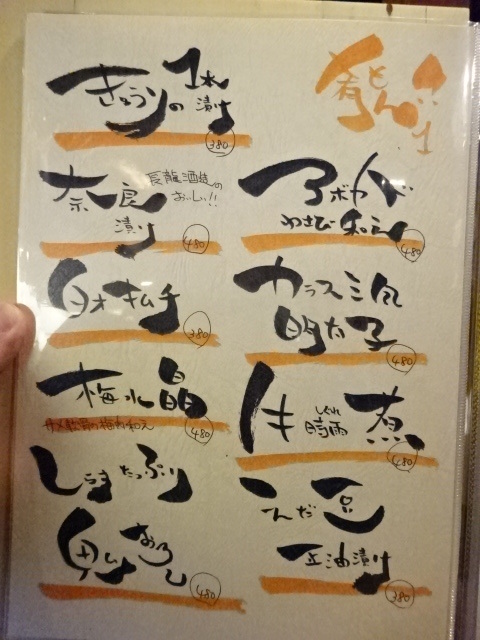 肴
きゅうりの1本漬け
380
奈良漬け
長龍酒造の
おいしい!!
480
白才キムチ
380
梅水晶
サメ軟骨の梅肉和え
480
しらすたっぷり
おろし
480
アボカド
わさび和え
480
カラスミ風
明太子
480
牛時雨煮
しぐれ
480
こんだ豆
正油漬け
380